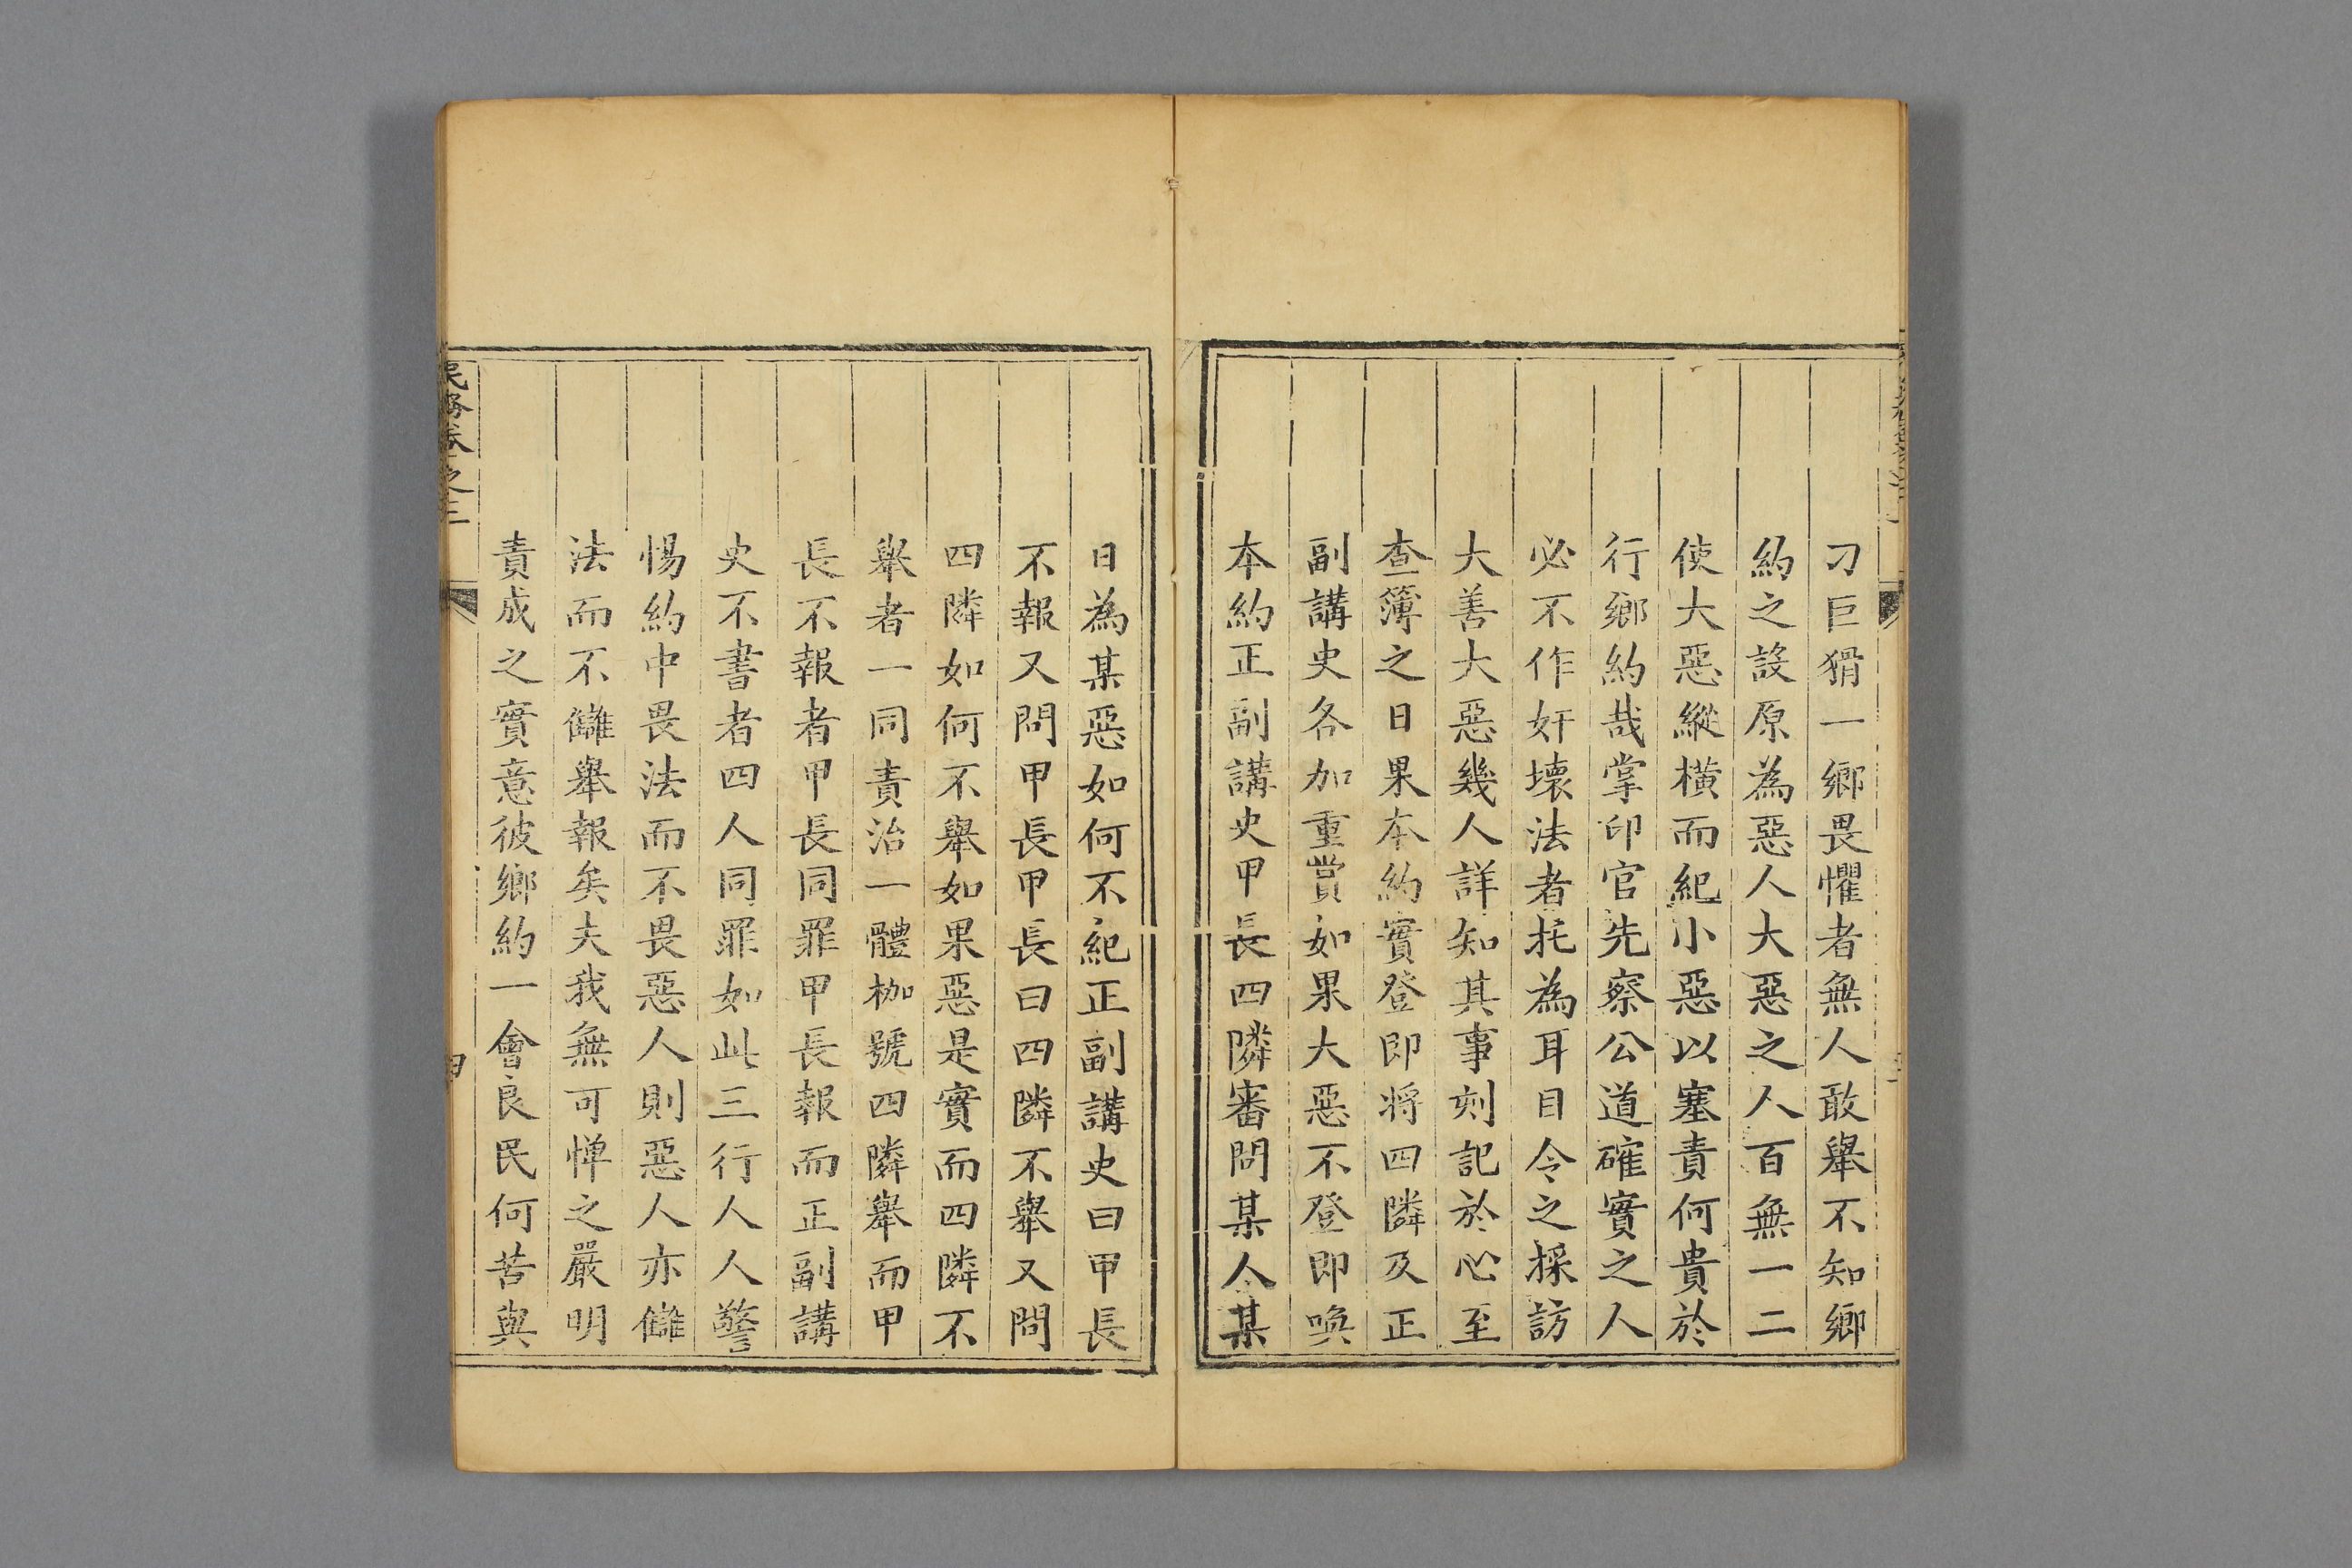 刁巨猾一鄉畏懼者無人敢舉不知鄉
約之設原為惡人大惡之人百無一二
使大惡縱橫而紀小惡以塞責何貴於
行鄉約哉掌印官先察公道確實之人
必不作奸壞法者托為耳目令之採訪
大善大惡幾人詳知其事刻記於心至
查簿之日果本約實登即将四隣及正
副講史各加重賞如果大惡不登即喚
本約正副講史甲長四隣審問某人某
日為某惡如何不紀正副講史曰甲長
不報又問甲長甲長曰四隣不舉又問
四隣如何不舉如果惡是實而四隣不
舉者一同責治一體枷號四隣舉而甲
長不報者甲長同罪甲長報而正副講
史不書者四人同罪如此三行人人警
惕約中畏法而不畏惡人則惡人亦讎
法而不讎舉報矣夫我無可憚之嚴明
責成之實意彼鄉約一會良民何苦與
民務卷之三